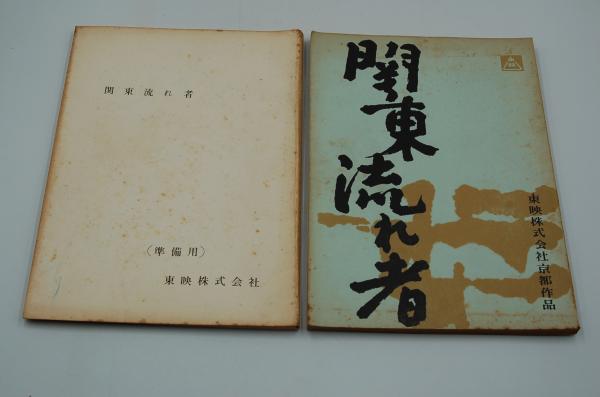 関東流れ者
（準備用）
東映株式会社
関東流れ者
東映株式会社京都作品